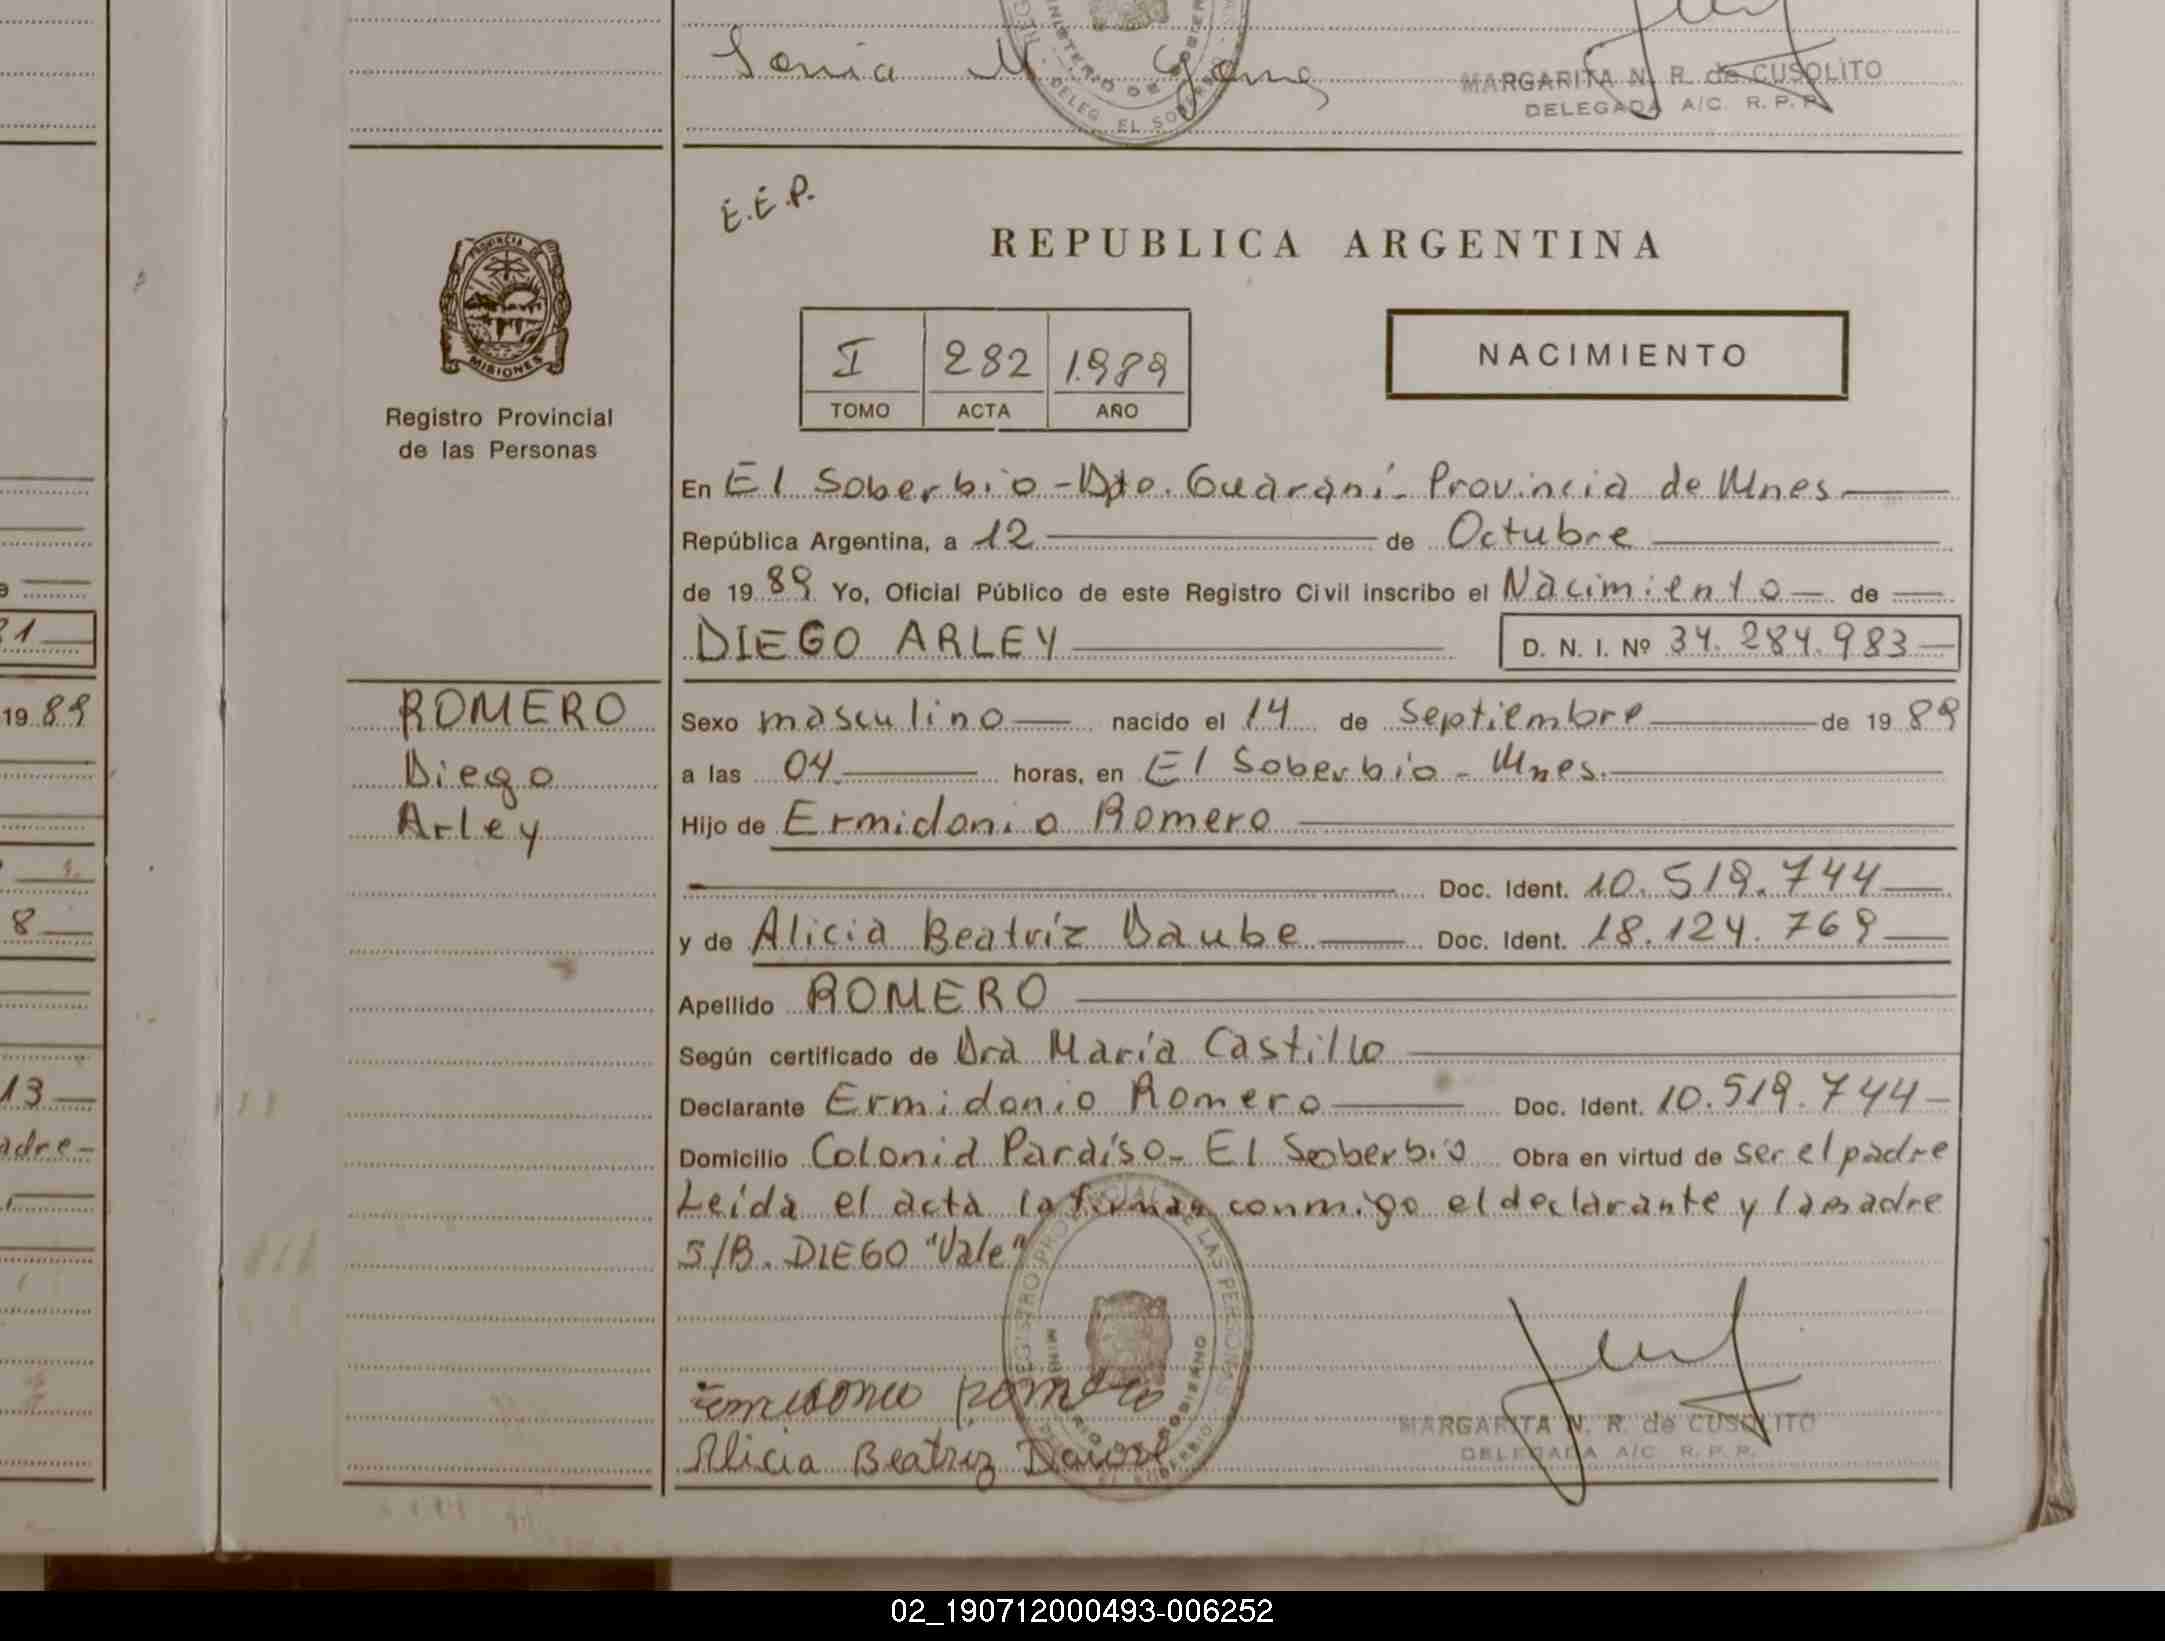 Sonia M. Gomez
MARGARITA N. R. de CUSOLITO
DELEGADA A/C. R. P. P.
MINISTERIO DE GOBIERNO
DELEG. EL SOBERBIO
E.E.P.
REPUBLICA ARGENTINA
PROVINCIA DE
MISIONES
I 282 1.989
TOMO ACTA AÑO
NACIMIENTO
Registro Provincial
de las Personas
En El Soberbio - Dto. Guaraní - Provincia de Mnes
República Argentina, a 12 de Octubre
de 19 89 Yo, Oficial Público de este Registro Civil inscribo el Nacimiento de
DIEGO ARLEY D. N. I. Nº 34.284.983
ROMERO
Diego
Arley
Sexo masculino nacido el 14 de Septiembre de 19 89
a las 04 horas, en El Soberbio - Mnes.
Hijo de Ermidonio Romero
Doc. Ident. 10.519.744
y de Alicia Beatríz Daube Doc. Ident. 18.124.769
Apellido ROMERO
Según certificado de Dra María Castillo
Declarante Ermidonio Romero Doc. Ident. 10.519.744
Domicilio Colonia Paraíso - El Soberbio Obra en virtud de ser el padre
Leída el acta la firman conmigo el declarante y la madre
S/B. DIEGO "Vale"
REGISTRO PROVINCIAL DE LAS PERSONAS
MINISTERIO DE GOBIERNO
Romero
Alicia Beatriz
MARGARITA N. R. de CUSOLITO
DELEGADA A/C. R. P. P.
31
19 89
8
13
adre
02_190712000493-006252